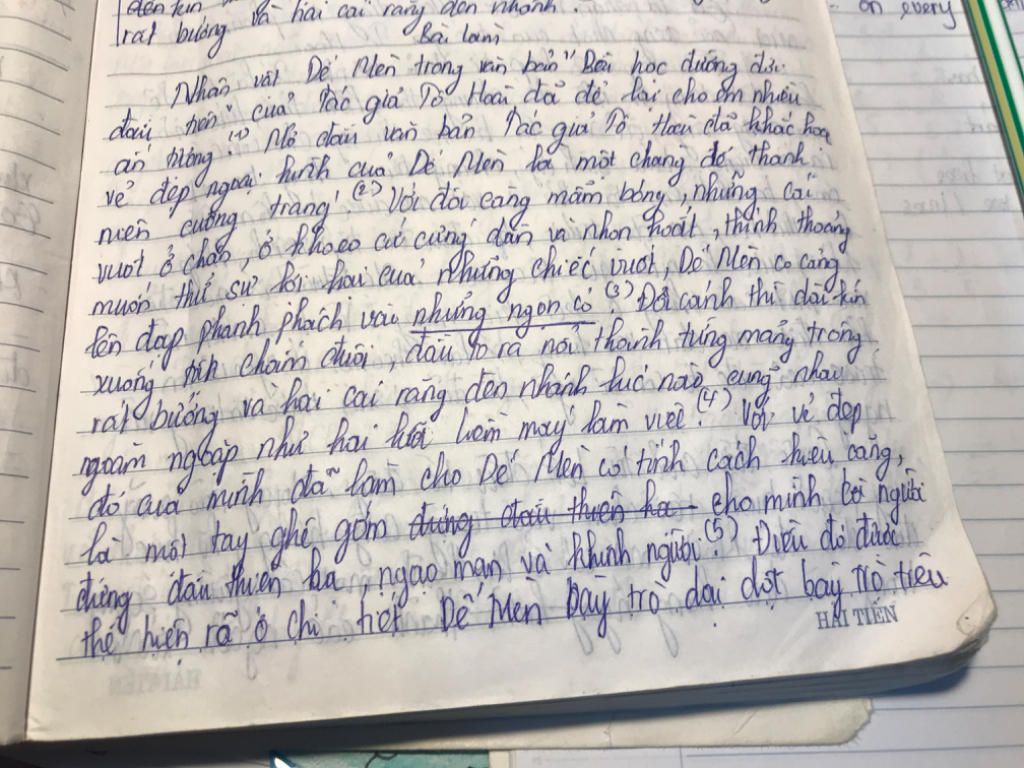 đen kịt và hai cái răng đen nhánh.
rất bướng
Bài làm
on every
Nhân vật Dế Mèn trong văn bản "Bài học đường đời
đầu tiên" của Tác giả Tô Hoài đã để lại cho em nhiều
ấn tượng.(1) Mở đầu văn bản Tác giả Tô Hoài đã khắc họa
vẻ đẹp ngoại hình của Dế Mèn là một chàng dế thanh
niên cường tráng.(2) Với đôi càng mẫm bóng, những cái
vuốt ở chân, ở khoeo cứ cứng dần và nhọn hoắt, thỉnh thoảng
muốn thử sự lợi hại của những chiếc vuốt, Dế Mèn co cẳng
lên đạp phanh phách vào những ngọn cỏ.(3) Đôi cánh thì dài kín
xuống chấm đuôi, đầu to ra nổi thành từng mảng trong
rất bướng và hai cái răng đen nhánh lúc nào cũng nhau
ngoàm ngoạp như hai lưỡi liềm máy làm việc.(4) Với vẻ đẹp
đó của mình đã làm cho Dế Mèn có tính cách kiêu căng,
là một tay ghê gớm đứng đầu thiên hạ cho mình là người
đứng đầu thiên hạ, ngạo mạn và khinh người.(5) Điều đó được
thể hiện rõ ở chi tiết Dế Mèn bày trò dại dột bày trò trêu
HẢI TIẾN
HẢI TIẾN